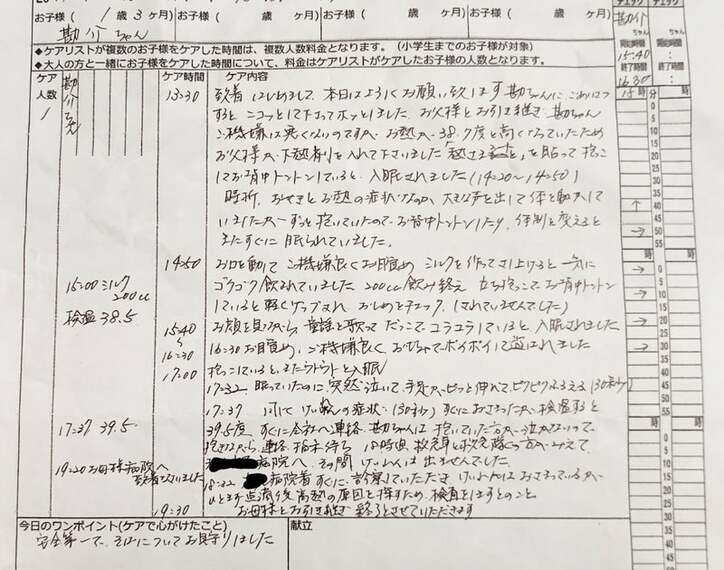 お子様 ( 1 歳 3 ヶ月)
お子様 ( 歳 ヶ月)
お子様 ( 歳 ヶ月)
お子様 ( 歳 ヶ月)
勘介 ちゃん
◆ケアリストが複数のお子様をケアした時間は、複数人数料金となります。(小学生までのお子様が対象)
◆大人の方と一緒にお子様をケアした時間について、料金はケアリストがケアしたお子様の人数となります。
ケア人数
勘介ちゃん
ケア時間
ケア内容
1
13:30 到着 はじめまして、本日はよろしくお願い致します 勘ちゃんに、ごあいさつ
するとニコッとして下さってホッとしました。お父様とお引き継ぎ 勘ちゃん
ご機嫌は悪くないのですが、お熱が、38.7度と高くなっていたため
お父様が、下熱剤を入れて下さいました 熱さまシートを貼って抱っこ
してお背中トントンしていると、入眠されました(14:20~14:50)
時折、おせきとお熱の症状なのか、大きな声を出して体を動かして
いましたが、ずっと抱いていたので、お背中トントンしたり、体制を変えると
またすぐに眠られていました。
14:50 お口を動かしてご機嫌良くお目覚め ミルクを作ってさし上げると一気に
15:00 ミルク 200cc
ゴクゴク飲まれていました 200cc飲み終え 立ち抱っこでお背中トントン
していると軽くゲップされ、おしめをチェック。(されていませんでした)
検温 38.5
15:40 ~ 16:30 お顔を見ながら、童謡を歌ってだっこでユラユラしていると、入眠されました
16:30 お目覚め、ご機嫌良く、おもちゃでポイポイして遊ばれました
17:00 抱っこしていると、またウトウトと入眠
17:32 眠っていたのに、突然泣いて、手足が、ピッと伸びて、ピクピクふるえる(30秒)
17:37 けいれんの症状(30秒)すぐにおさまったが、検温すると
17:37 39.5
39.5度 すぐに会社へ連絡、勘ちゃんは抱いていた方が、泣かないので
抱きながら、連絡、指示待ち 18時頃、救急車と救急隊の方がみえて、
病院へ その間 けいれんは出ませんでした。
19:20 お母様 病院へ到着されていました
18:22 病院着 すぐに診察していただき、けいれんはおさまっているが、
ひとまず 高熱の原因を探すため、検査をしますとのこと
19:30 お母様とお引き継ぎ 終了とさせていただきます
今日のワンポイント(ケアで心がけたこと)
安全第一で、そばについてお見守りしました
献立
チェック
勘介
ちゃん
開始時間
15:40
終了時間
16:30
15時
分
0
5
10
15
20
25
30
35
40
45
50
55
時
0
5
10
15
20
25
30
35
40
45
50
55
時
0
5
10
15
20
25
30
35
40
45
50
チェック
ちゃん
開始時間
:
終了時間
:
時